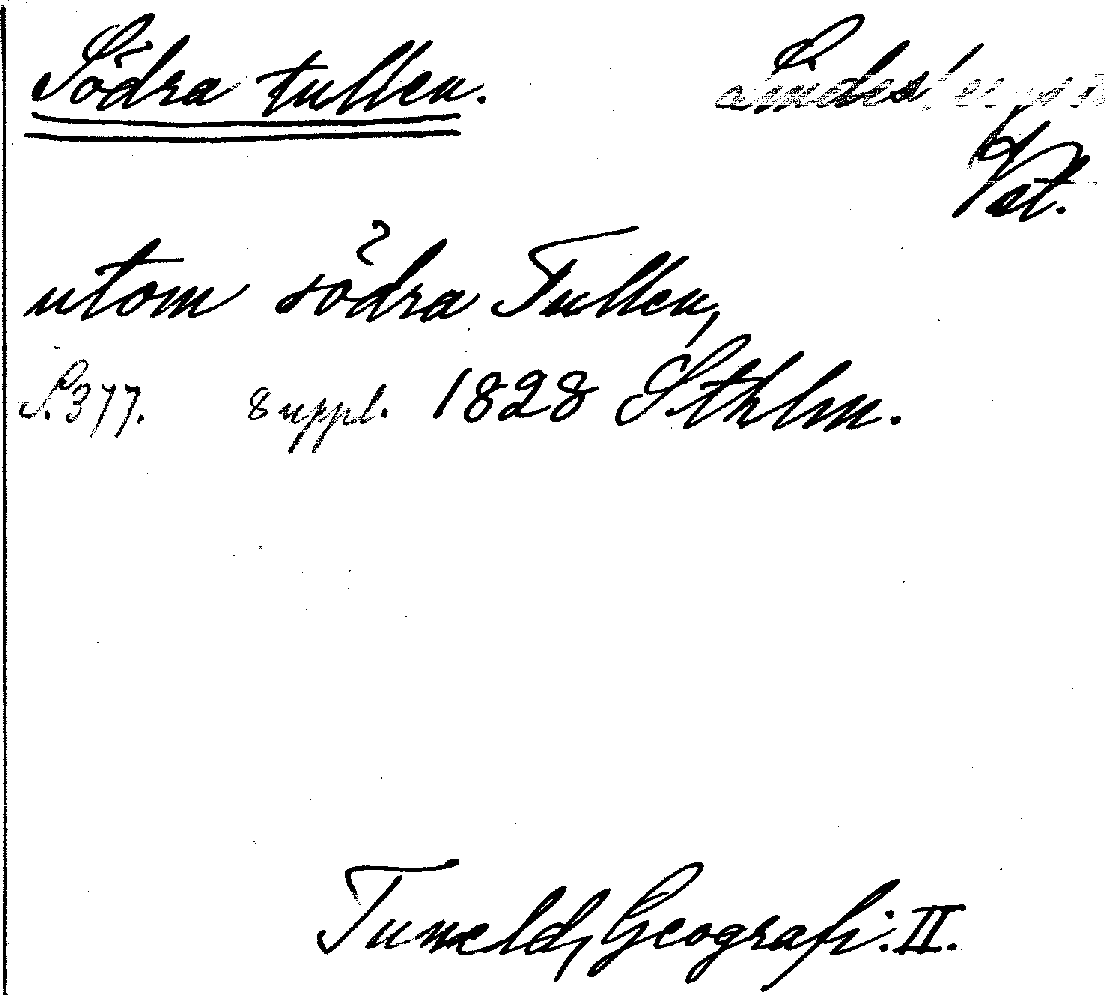 Södra tullen.
Lindes
Vst.
utom södra Tullen,
S. 377. 8 uppl. 1828 Sthlm.
Tuneld, Geografi. II.